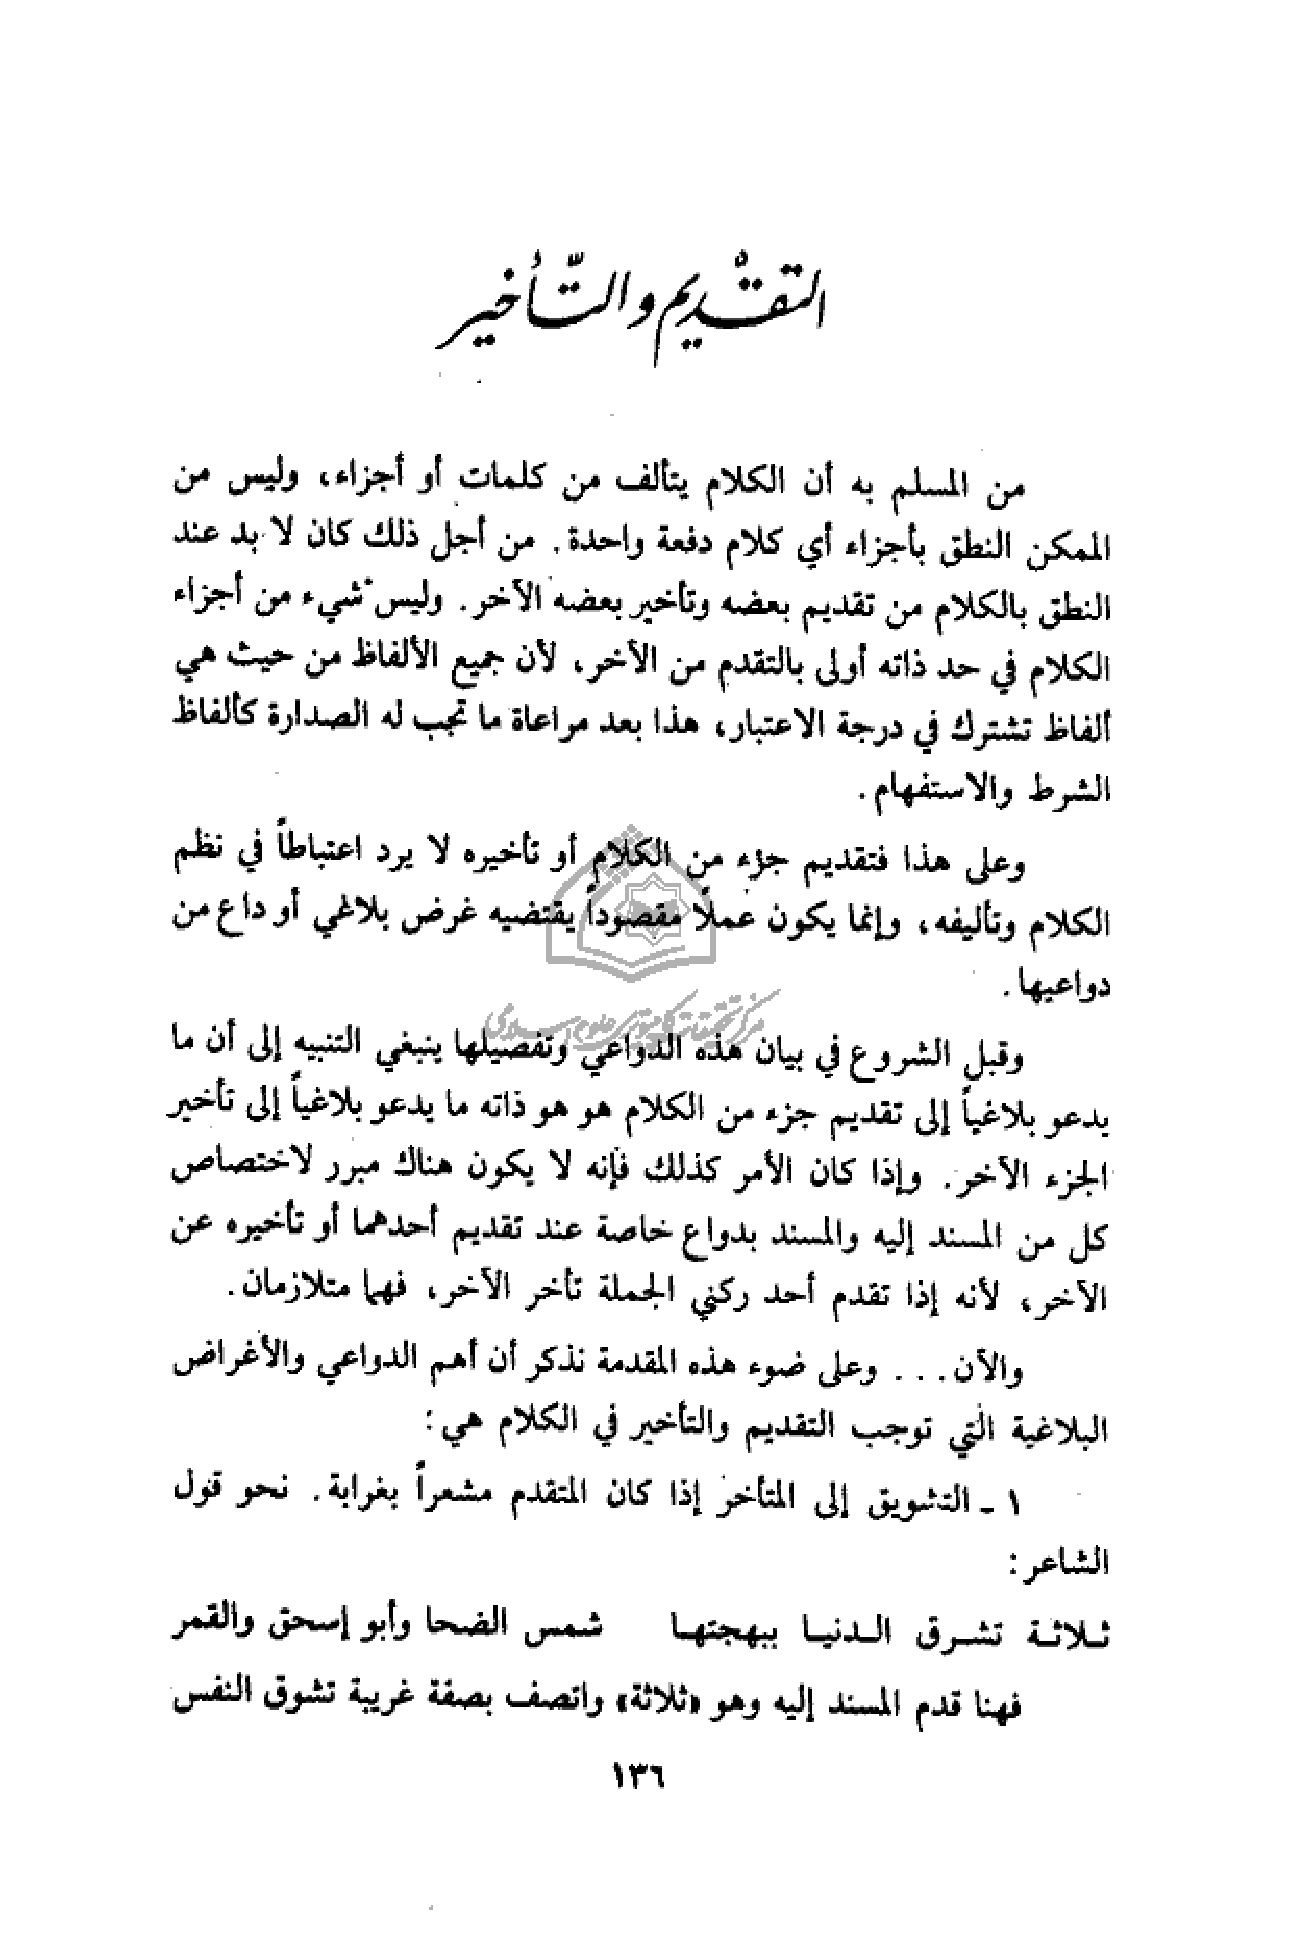 التقديم والتأخير
من المسلم به أن الكلام يتألف من كلمات أو أجزاء، وليس من
الممكن النطق بأجزاء أي كلام دفعة واحدة. من أجل ذلك كان لا بد عند
النطق بالكلام من تقديم بعضه وتأخير بعضه الآخر. وليس شيء من أجزاء
الكلام في حد ذاته أولى بالتقدم من الآخر، لأن جميع الألفاظ من حيث هي
ألفاظ تشترك في درجة الاعتبار، هذا بعد مراعاة ما تجب له الصدارة كألفاظ
الشرط والاستفهام.
وعلى هذا فتقديم جزء من الكلام أو تأخيره لا يرد اعتباطاً في نظم
الكلام وتأليفه، وإنما يكون عملاً مقصوداً يقتضيه غرض بلاغي أو داع من
دواعيها.
مركز تحقيقات كامپيوتری علوم اسلامی
وقبل الشروع في بيان هذه الدواعي وتفصيلها ينبغي التنبيه إلى أن ما
يدعو بلاغياً إلى تقديم جزء من الكلام هو هو ذاته ما يدعو بلاغياً إلى تأخير
الجزء الآخر. وإذا كان الأمر كذلك فإنه لا يكون هناك مبرر لاختصاص
كل من المسند إليه والمسند بدواع خاصة عند تقديم أحدهما أو تأخيره عن
الآخر، لأنه إذا تقدم أحد ركني الجملة تأخر الآخر، فهما متلازمان.
والآن... وعلى ضوء هذه المقدمة نذكر أن أهم الدواعي والأغراض
البلاغية التي توجب التقديم والتأخير في الكلام هي:
١ ـ التشويق إلى المتأخر إذا كان المتقدم مشعراً بغرابة. نحو قول
الشاعر:
ثـلاثـة تشـرق الـدنيـا ببهجتهـا شمس الضحا وأبو إسحق والقمر
فهنا قدم المسند إليه وهو «ثلاثة» واتصف بصفة غريبة تشوق النفس
١٣٦